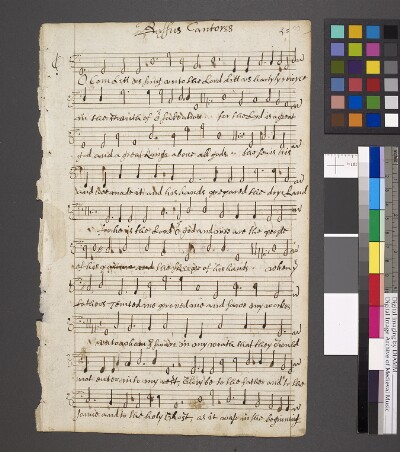 Bassus Cantoris
O Com lett us sing unto the Lord lett us hartyly reioyce
in the strength of
for the Lord is a great
god and a great Kinge above all gods
the sea is his
and hee made it and his hands prepared the dry Land
for hee is the Lord
and wee are the people
of his
the sheepe of his hands when y
fathers Tempted me proved me and sawe my works
unto whom I sware in my wrath that they should
not enter into my rest, Glory be to the father and to the
sonne and to the holy Ghost, as it was in the beginning
Digital Imaging by DIAMM
Digital Image Archive of Medieval Music